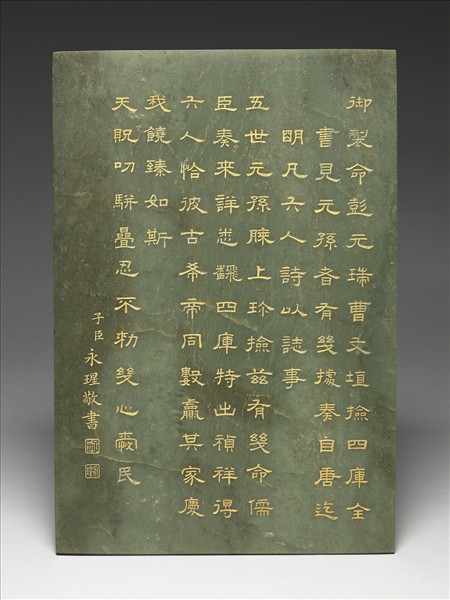 御製命彭元瑞曹文埴撿四庫全
書見元孫者有幾據奏自唐迄
明凡六人詩以誌事
五世元孫膝上珍撿茲有幾命儒
臣奏來詳悉繙四庫特出禎祥得
六人恰彼古希帝同數贏其家慶
我饒臻如斯
天貺叨駢疊忍不勑幾心愛民
子臣永瑆敬書